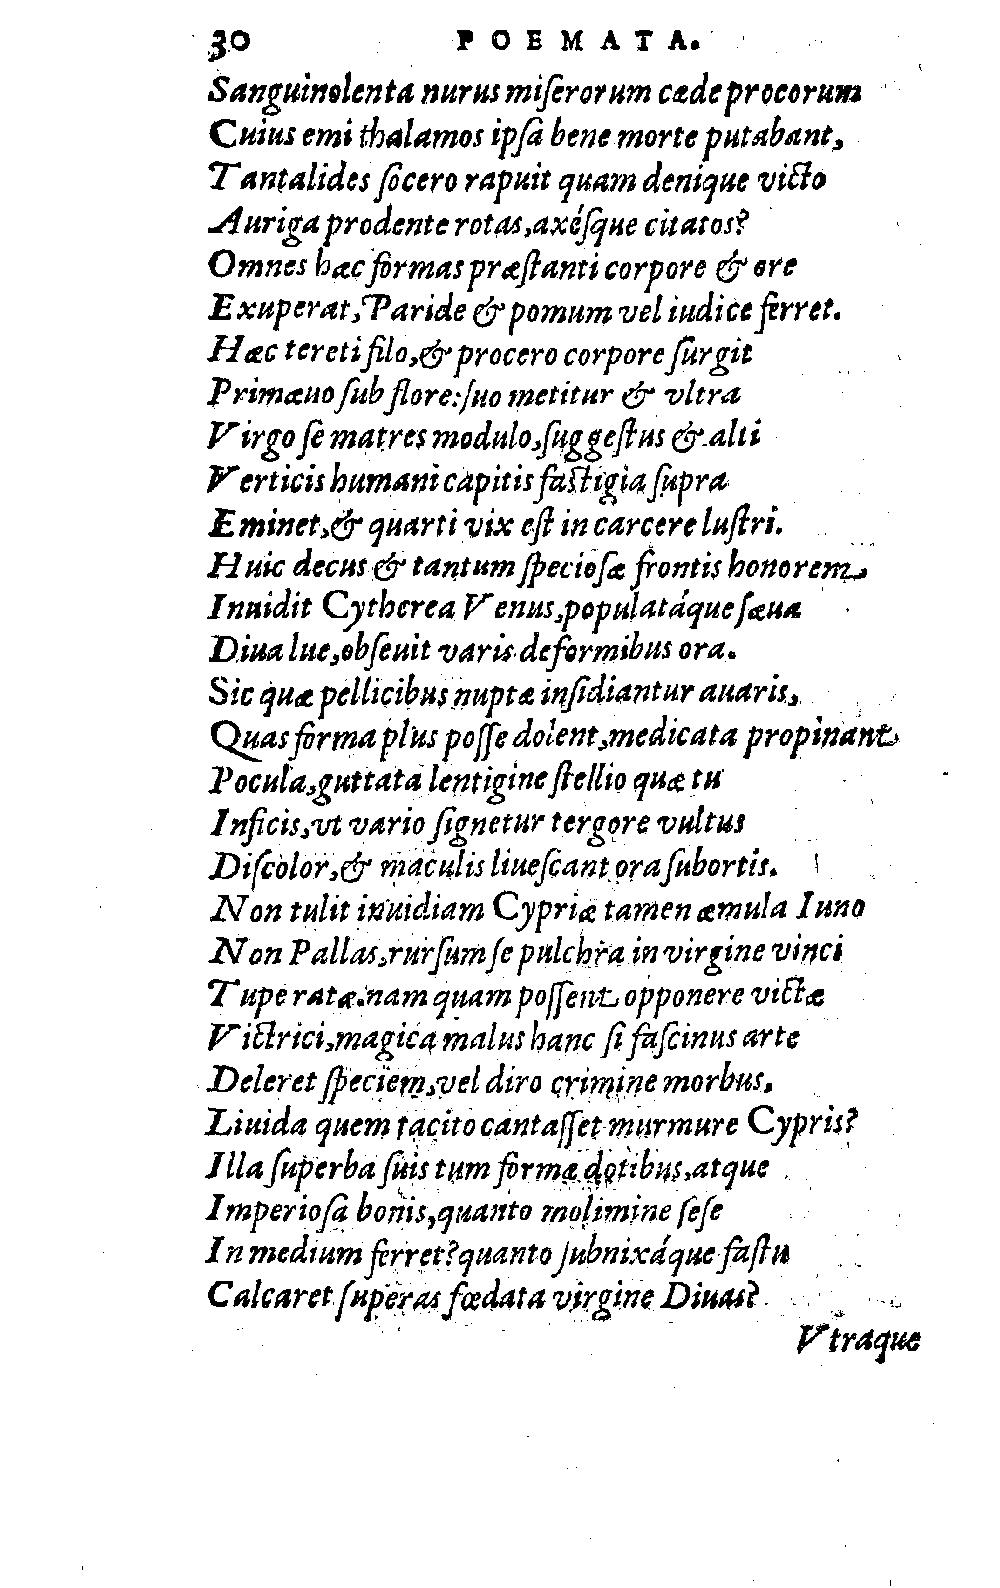 30 POEMATA.
Sanguinolenta nurus miſerorum cæde procorum
Cuius emi thalamos ipſa bene morte putabant,
Tantalides ſocero rapuit quam denique victo
Auriga prodente rotas, axéſque citatos?
Omnes hæc formas præſtanti corpore & ore
Exuperat, Paride & pomum vel iudice ferret.
Hæc tereti filo, & procero corpore ſurgit
Primæuo ſub flore: ſuo metitur & vltra
Virgo ſe matres modulo, ſuggeſtus & alti
Verticis humani capitis faſtigia ſupra
Eminet, & quarti vix eſt in carcere luſtri.
Huic decus & tantum ſpecioſæ frontis honorem,
Inuidit Cytherea Venus, populatáque ſæua
Diua lue, obſeuit varis deformibus ora.
Sic quæ pellicibus nuptæ inſidiantur auaris,
Quas forma plus poſſe dolent, medicata propinant
Pocula, guttata lentigine ſtellio quæ tu
Inficis, vt vario ſignetur tergore vultus
Diſcolor, & maculis liueſcant ora ſubortis.
Non tulit inuidiam Cypriæ tamen æmula Iuno
Non Pallas, rurſum ſe pulchra in virgine vinci
Tupe ratæ. nam quam poſſent opponere victæ
Victrici, magica malus hanc ſi faſcinus arte
Deleret ſpeciem, vel diro crimine morbus,
Liuida quem tacito cantaſſet murmure Cypris?
Illa ſuperba ſuis tum formæ dotibus, atque
Imperioſa bonis, quanto molimine ſeſe
In medium ferret? quanto ſubnixáque faſtu
Calcaret ſuperas fœdata virgine Diuas?
Vtraque